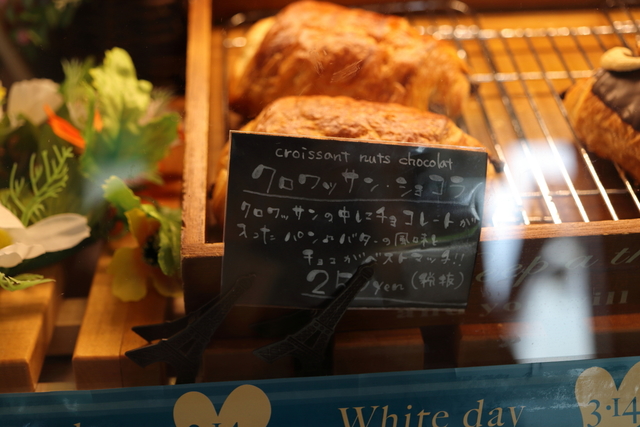 croissant nuts chocolat
クロワッサン・ショコラ
クロワッサンの中にチョコレートが
入ったパン♪バターの風味と
チョコがベストマッチ!!
yen (税抜)
White day 3.14